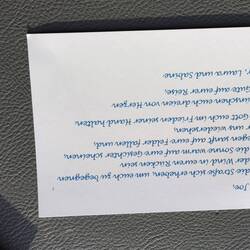 Joe,
die Straße sich erheben, um euch zu begegnen
der Wind in euren Rücken sein
die Sonne warm auf eure Gesichter scheinen,
Regen sanft auf eure Felder fallen und,
wir uns wiedersehen,
Gott euch im Frieden seiner Hand halten.
wünschen euch dreien von Herzen
Gute auf eurer Reise,
Laura und Sabine